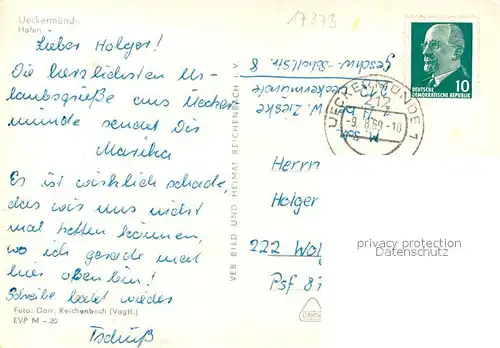 Ueckermünde
Hafen
17373
Lieber Holger!
Die herzlichsten Ur-
laubsgrüße aus Uecker
münde sendet Dir
Marika
Es ist wirklich schade,
das wir uns nicht
mal treffen können,
wo ich gerade mal
hier oben bin!
Schreibe bald wieder
Foto: Darr, Reichenbach (Vogtl.)
EVP M -.20
Tschüß
VEB BILD UND HEIMAT REICHENBACH i. V.
W. Zieske
Ueckermünde
Geschw.-Scholl Str. 8
UECKERMÜNDE 1
212
-9.8.69-10
10
DEUTSCHE
DEMOKRATISCHE REPUBLIK
Herrn
Holger
222 Wol
Psf 81
privacy protection
Datenschutz